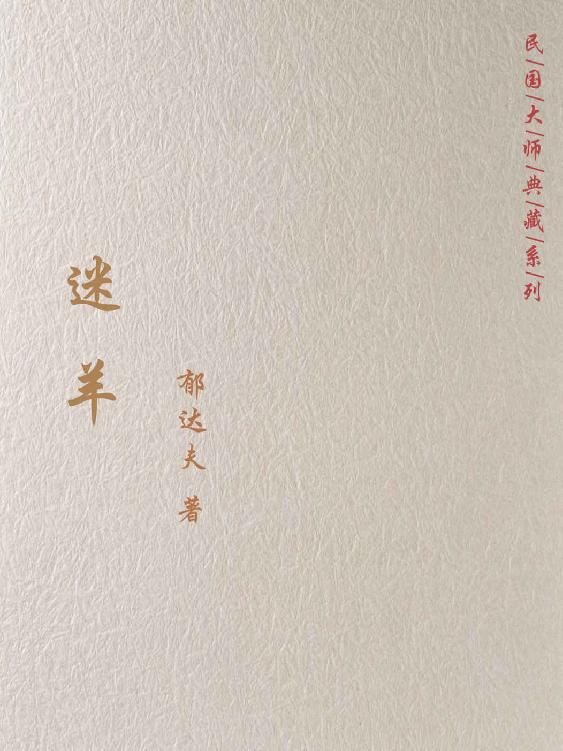 民|国|大|师|典|藏|系|列
郁达夫 著
迷羊